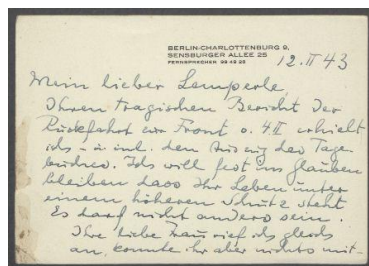 BERLIN-CHARLOTTENBURG 9,
SENSBURGER ALLEE 25
FERNSPRECHER 99 42 25
12. II 43
Mein lieber Lemperle,
Ihren tragischen Bericht der
Rückfahrt zur Front v. 4.II erhielt
ich - u. incl. den Auszug des Tage-
buches. Ich will fest im Glauben
bleiben dass Ihr Leben unter
einem höheren Schutz steht
Es darf nicht anders sein.
Ihre liebe Frau rief ich gleich
an, konnte ihr aber nichts mit-